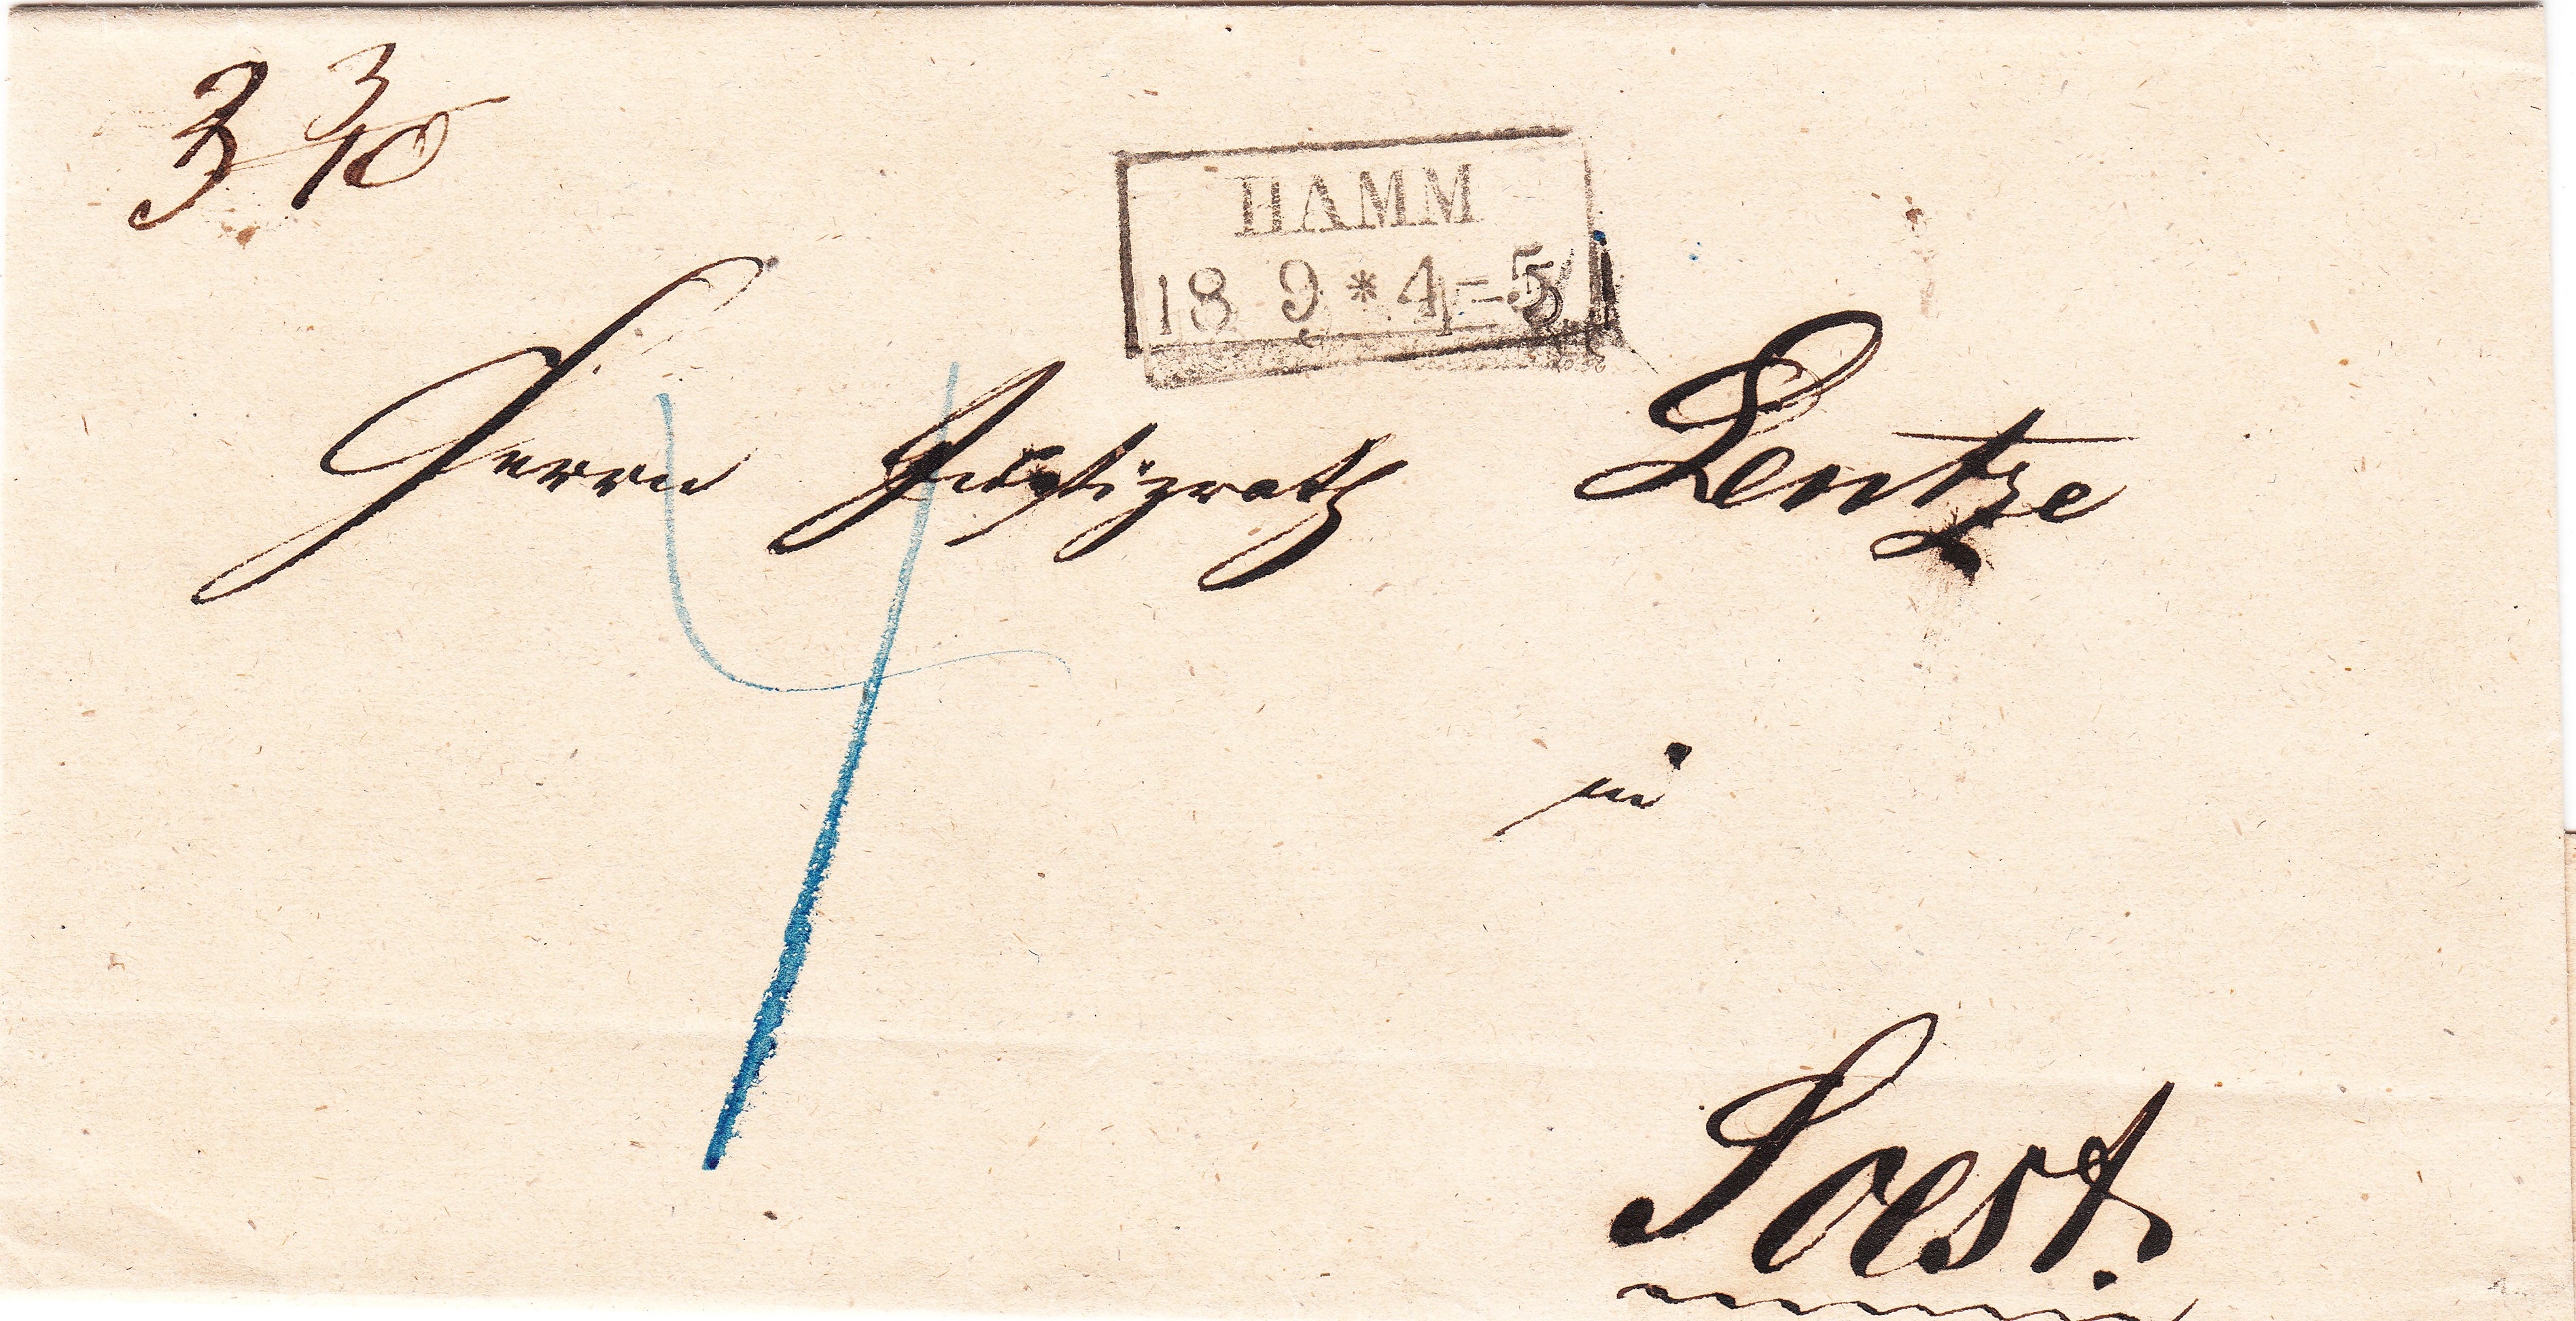 3 3/10
HAMM
18 9 * 4-5
4
Herrn Justizrath Lentze
in
Soest.